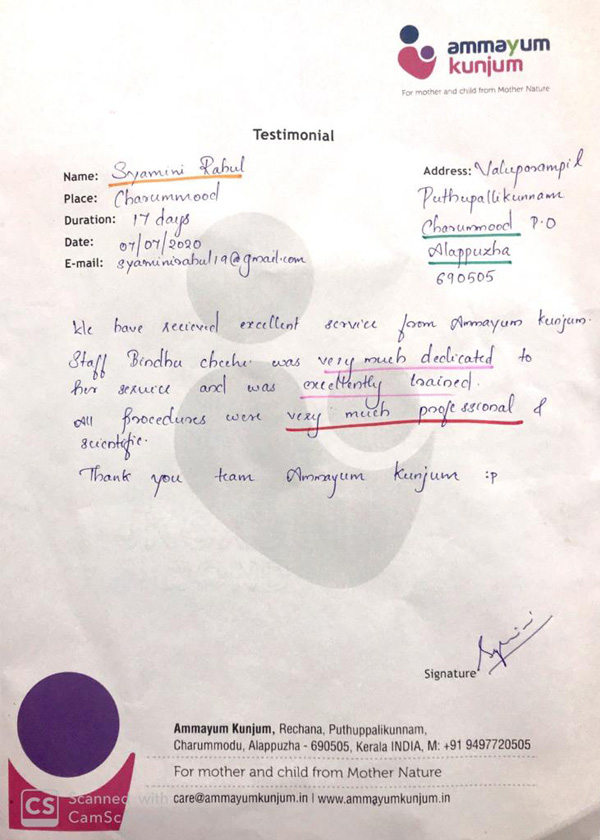 ammayum
kunjum
For mother and child from Mother Nature
Testimonial
Name: Syamini Rahul
Place: Charummood
Duration: 17 days
Date: 07/07/2020
E-mail: syaminirahul19@gmail.com
Address: Valuparampil
Puthupallikunnam
Charummood P.O
Alappuzha
690505
We have recieved excellent service from Ammayum kunjum.
Staff Bindhu chechi was very much dedicated to
her service and was excellently trained.
All procedures were very much professional &
scientific.
Thank you team Ammayum Kunjum :p
Signature Syamini
Ammayum Kunjum, Rechana, Puthuppalikunnam,
Charummodu, Alappuzha - 690505, Kerala INDIA, M: +91 9497720505
For mother and child from Mother Nature
care@ammayumkunjum.in | www.ammayumkunjum.in
CS Scanned with
CamSc